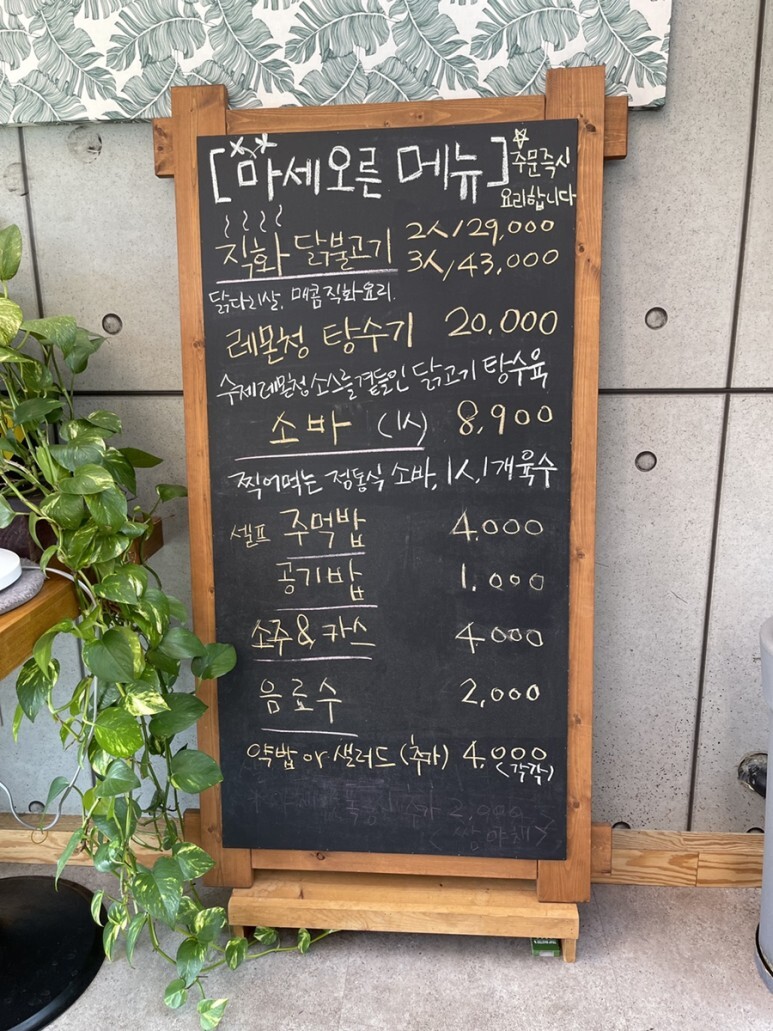 [마세오른 메뉴] 주문즉시
요리합니다
직화 닭불고기 2人/29,000
3人/43,000
닭다리살, 매콤직화요리.
레몬청 탕수기 20,000
수제레몬청소스를곁들인 닭고기 탕수육
소바 (1人) 8,900
찍어먹는 정통식 소바, 1人, 1개육수
셀프 주먹밥 4,000
공기밥 1,000
소주 & 카스 4000
음료수 2,000
약밥 or 샐러드 (추가) 4,000
(각각)
추가 2,000
<쌈야채>